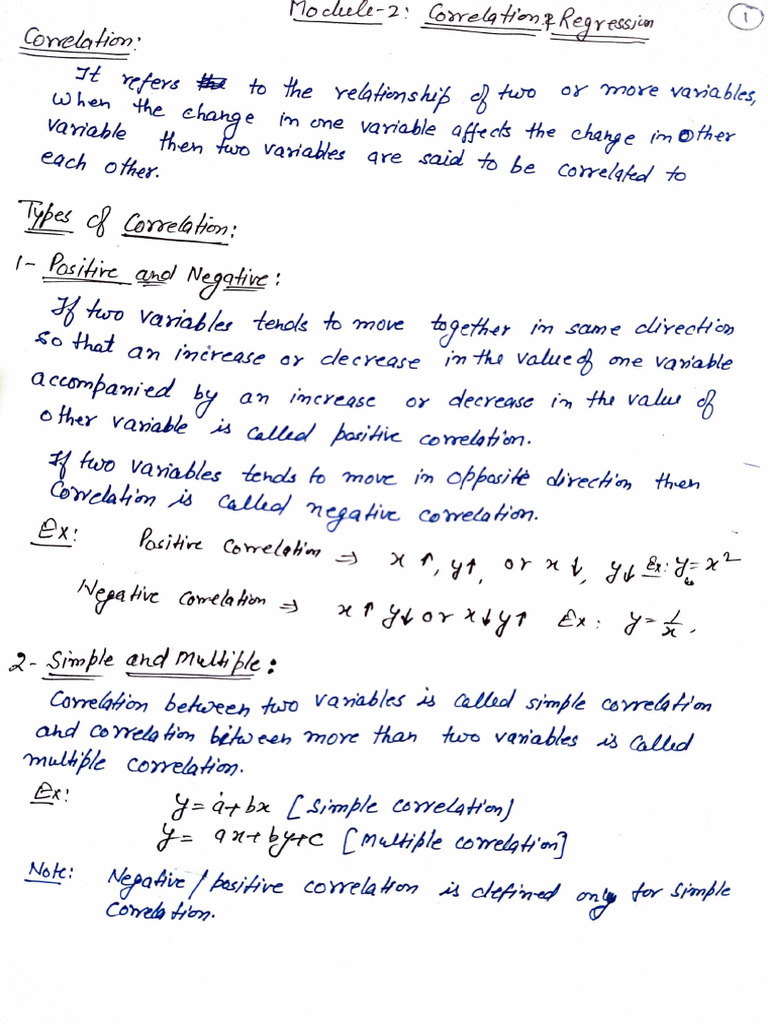 Module-2: Correlation & Regression
1
Correlation:
It refers to the relationship of two or more variables,
when the change in one variable affects the change in other
variable then two variables are said to be correlated to
each other.
Types of Correlation:
1- Positive and Negative:
If two variables tends to move together in same direction
so that an increase or decrease in the value of one variable
accompanied by an increase or decrease in the value of
other variable is called positive correlation.
If two variables tends to move in opposite direction then
Correlation is called negative correlation.
Ex: Positive Correlation ⇒ x↑, y↑, or x↓, y↓ Ex: y = x²
Negative Correlation ⇒ x↑ y↓ or x↓ y↑ Ex: y = 1/x.
2- Simple and Multiple:
Correlation between two variables is called simple correlation
and correlation between more than two variables is called
multiple correlation.
Ex: y = a + bx [Simple correlation]
y = ax + by + c [Multiple correlation]
Note: Negative / positive correlation is defined only for simple
Correlation.